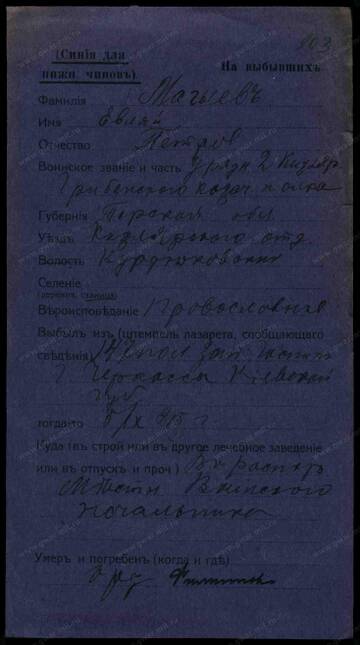 103
(Синія для
нижн. чиновъ).
На выбывшихъ
Фамилія Магыевъ
Имя Евлай
Отчество Петров
Воинское званіе и часть Урядн 2 Кизляр
Гребенского казач. полка
Губернія Терская обл
Уѣздъ Кизлярского отд
Волость Курдюковская
Селеніе
(деревня, станица)
Вѣроисповѣданіе Провославное
Выбылъ изъ (штемпель лазарета, сообщающаго
свѣдѣнія)
г Черкассы Кіевской
губ
когда
Куда (въ строй или въ другое лечебное заведеніе
или въ отпускъ и проч.) Въ распор
Мѣстн Воинского
начальника
Умеръ и погребенъ (когда и гдѣ)